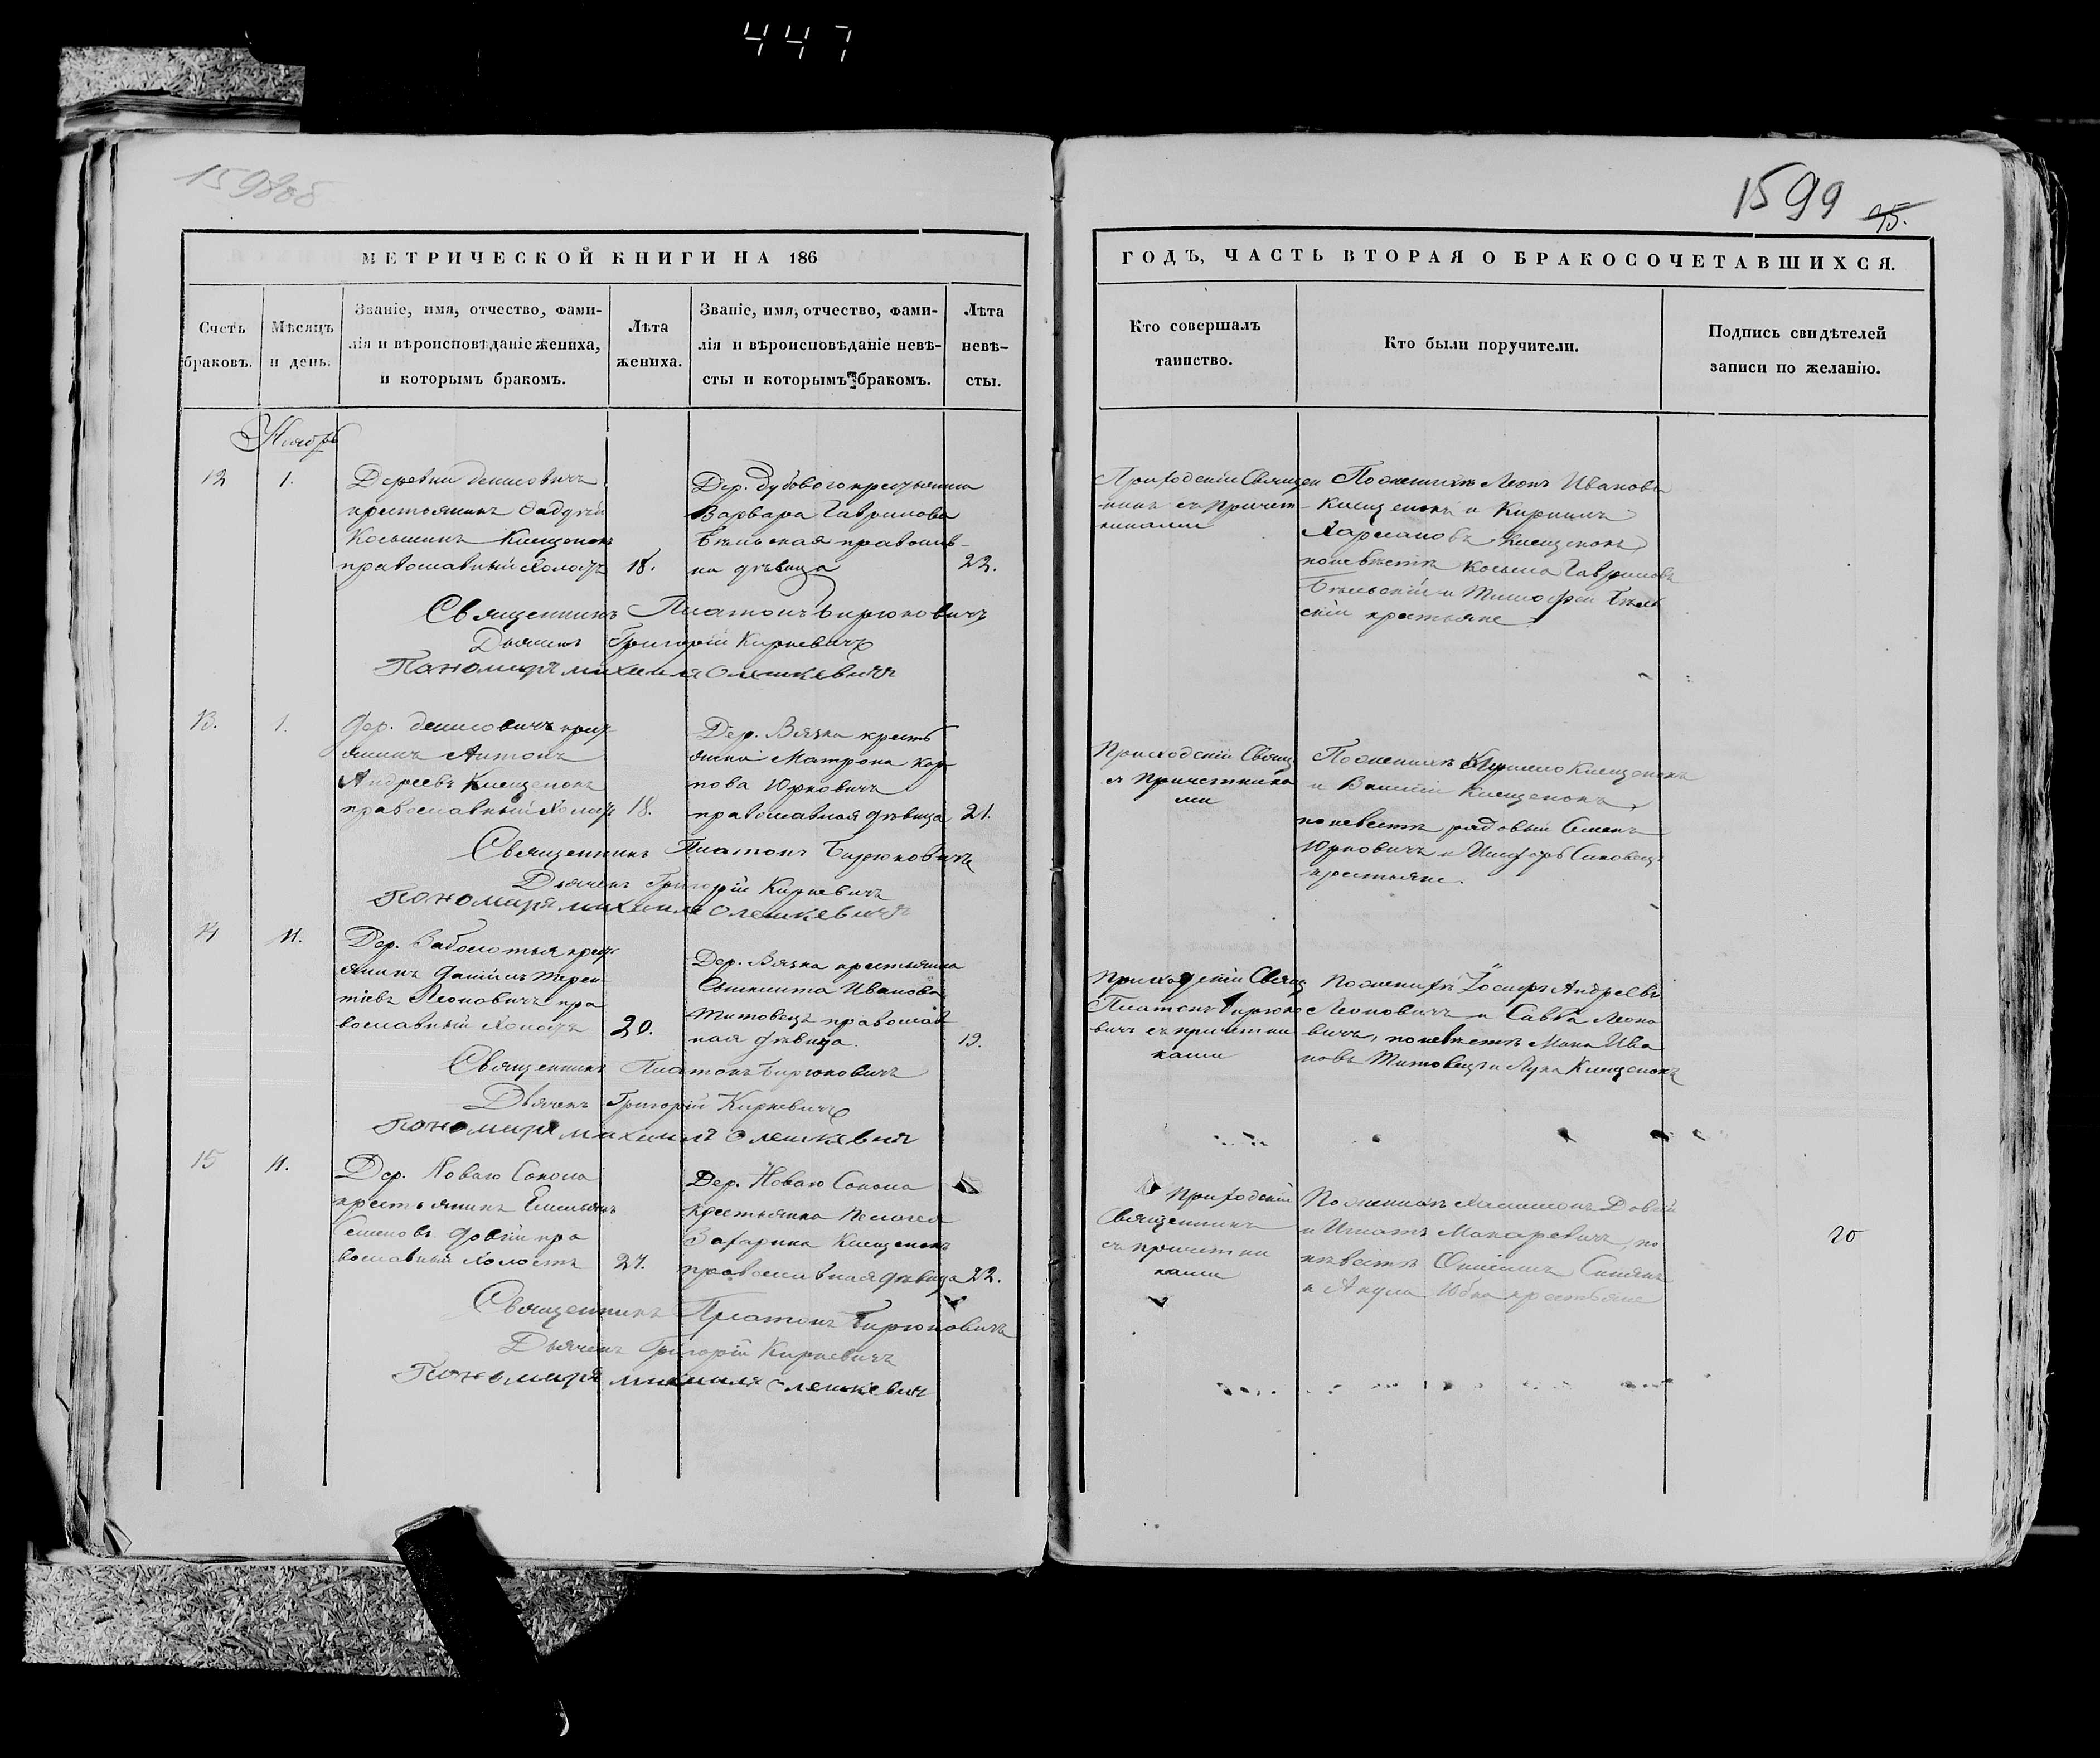 447
1598об
1599 95.
МЕТРИЧЕСКОЙ КНИГИ НА 186
Счетъ браковъ.
Мѣсяцъ и день.
Званіе, имя, отчество, фами-
лія и вѣроисповѣданіе жениха,
и которымъ бракомъ.
Лѣта
жениха.
Званіе, имя, отчество, фами-
лія и вѣроисповѣданіе невѣ-
сты и которымъ бракомъ.
Лѣта
невѣ-
сты.
ГОДЪ, ЧАСТЬ ВТОРАЯ О БРАКОСОЧЕТАВШИХСЯ.
Кто совершалъ
таинство.
Кто были поручители.
Подпись свидѣтелей
записи по желанію.
Ноябрь
12 1.
Деревни Денисовичъ
крестьянинъ Фадѣй
Косьминъ Клещенокъ
православный Холостъ 18.
Дер. Дубового крестьянка
Варвара Гаврилова
Бѣльская православ-
на дѣвица 22.
Приходскій Священ
никъ съ Причет-
никами
По женихѣ Леонъ Ивановъ
Клещенокъ и Кириллъ
Харлановъ Клещенокъ
по невѣстѣ Косьма Гавриловъ
Бѣльскій и Тимофей Бѣль
скій крестьяне
Священникъ Платонъ Бирюковичъ
Дьячекъ Григорій Киркевичъ
Пономаръ Михаилъ Олешкевичъ
13. 1.
Дер. Денисовичъ крест
янинъ Антонъ
Андреевъ Клещенокъ
православный Холост 18.
Дер. Вязка кресть
янка Матрона Кар
пова Юрковичъ
православная дѣвица 21.
Приходскій Свящ
съ причетника
ми
По женихѣ Клещенокъ
и Василій Клещенокъ,
по невестѣ рядовый Семенъ
Юрковичъ и
крестьяне.
Священникъ Платонъ Бирюковичъ
Дьячекъ Григорій Киркевичъ
Пономаръ Михаилъ Олешкевичъ
14 11.
Дер. Заболотья крест
янинъ Даніилъ Терен
тіевъ Леоновичъ пра
вославный Холостъ 20.
Дер. Вязка крестьянка
Ивановъ
Титовецъ православ
ная дѣвица. 19.
Приходскій Свящ
Платонъ Бирюко
вичъ съ причетни
ками
По женихѣ Іосифъ Андреевъ
Леоновичъ и Савва Леоно
вичъ, по невѣстѣ Мина Ива
новъ Титовецъ и Лука Клещенокъ
Священникъ Платонъ Бирюковичъ
Дьячекъ Григорій Киркевичъ
Пономаръ Михаилъ Олешкевичъ
15 11.
Дер. Новаго Сокола
крестьянинъ Емельянъ
Семеновъ Довгій пра
вославный Холостъ 27.
Дер. Новаго Сокола
крестьянка Пелагея
Захарина Клещенокъ
православная дѣвица 22.
Приходскій
Священникъ
съ причетни
ками
По женихѣ Довгій
и Игнатъ Макаревичъ, по
невѣстѣ Онисимъ
и Акула Юбка крестьяне
20
Священникъ Платонъ Бирюковичъ
Дьячекъ Григорій Киркевичъ
Пономаръ Михаилъ Олешкевичъ